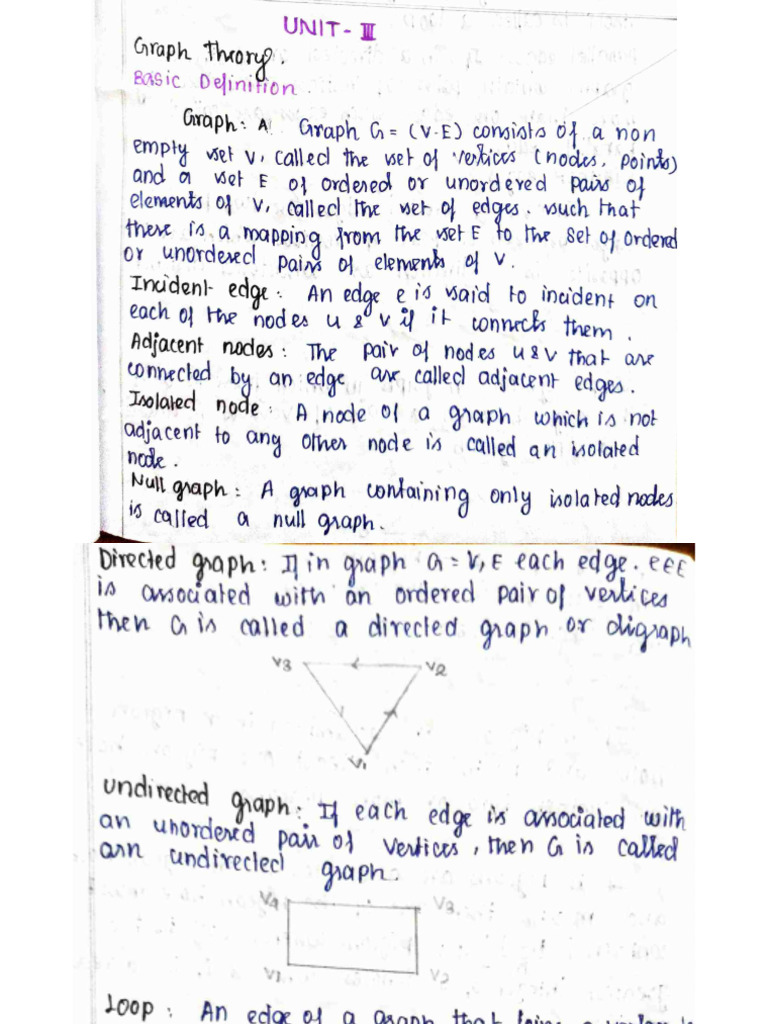 UNIT - III
Graph Theory.
Basic Definition
Graph: A Graph G = (V.E) consists of a non
empty set V, called the set of vertices (nodes, points)
and a set E of ordered or unordered pairs of
elements of V, called the set of edges. such that
there is a mapping from the set E to the set of ordered
or unordered pairs of elements of V.
Incident edge: An edge e is said to incident on
each of the nodes u & v if it connects them.
Adjacent nodes: The pair of nodes u & v that are
connected by an edge are called adjacent edges.
Isolated node: A node of a graph which is not
adjacent to any other node is called an isolated
node.
Null graph: A graph containing only isolated nodes
is called a null graph.
Directed graph: If in graph G = V, E each edge. e∈E
is associated with an ordered pair of vertices
then G is called a directed graph or digraph
V3 V2
V1
undirected graph: If each edge is associated with
an unordered pair of vertices, then G is called
arn undirected graph.
V4 V3
V1 V2
Loop: An edge of a graph that joins a